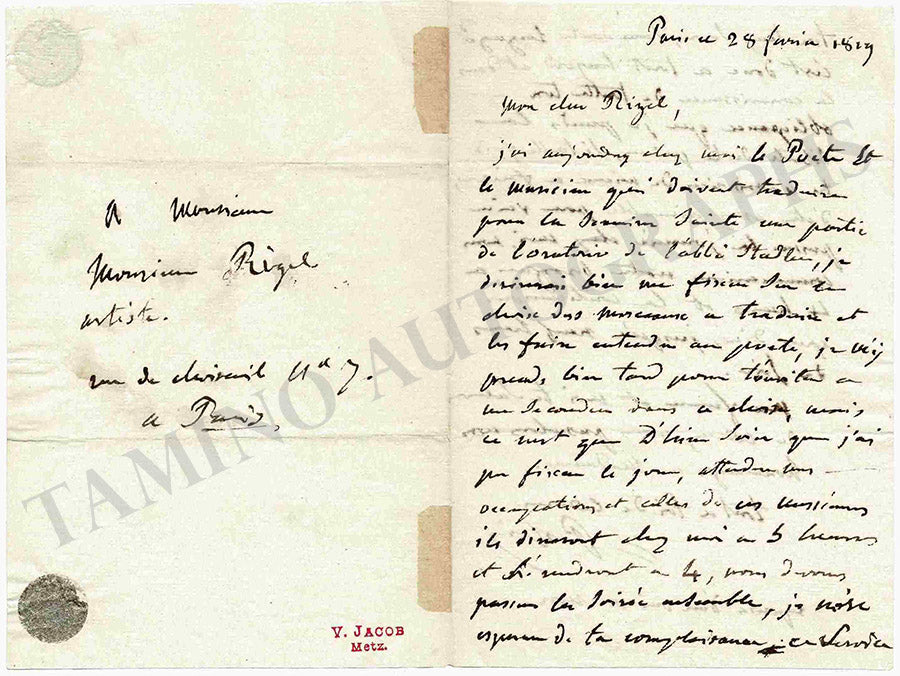 A Monsieur
Monsieur Rigel
artiste.
rue de choiseuil n° 7.
a Paris,
V. JACOB
Metz.
Paris ce 28 fevrier 1819
Mon cher Rigel,
j'ai aujourdhuy chez moi le Poete Et
le musicien qui doivent traduire
pour la Semaine Sainte une partie
de l'oratorio de l'abbé Stadler, je
desirerais bien me fixer Sur le
choix des morceaux a traduire et
les faire entendre au poete, je m'y
prends bien tard pour t'inviter a
me Seconder dans ce choix, mais
ce n'est que D'hier Soir que j'ai
pu fixer le jour, attendu mes
occupations et celles de ces messieurs
ils dineront chez moi a 5 heures
et S'y rendront a 4, nous devons
passer la Soirée ensemble, je n'ose
esperer de ta complaisance ce Service
TAMINO AUTOGRAPHS